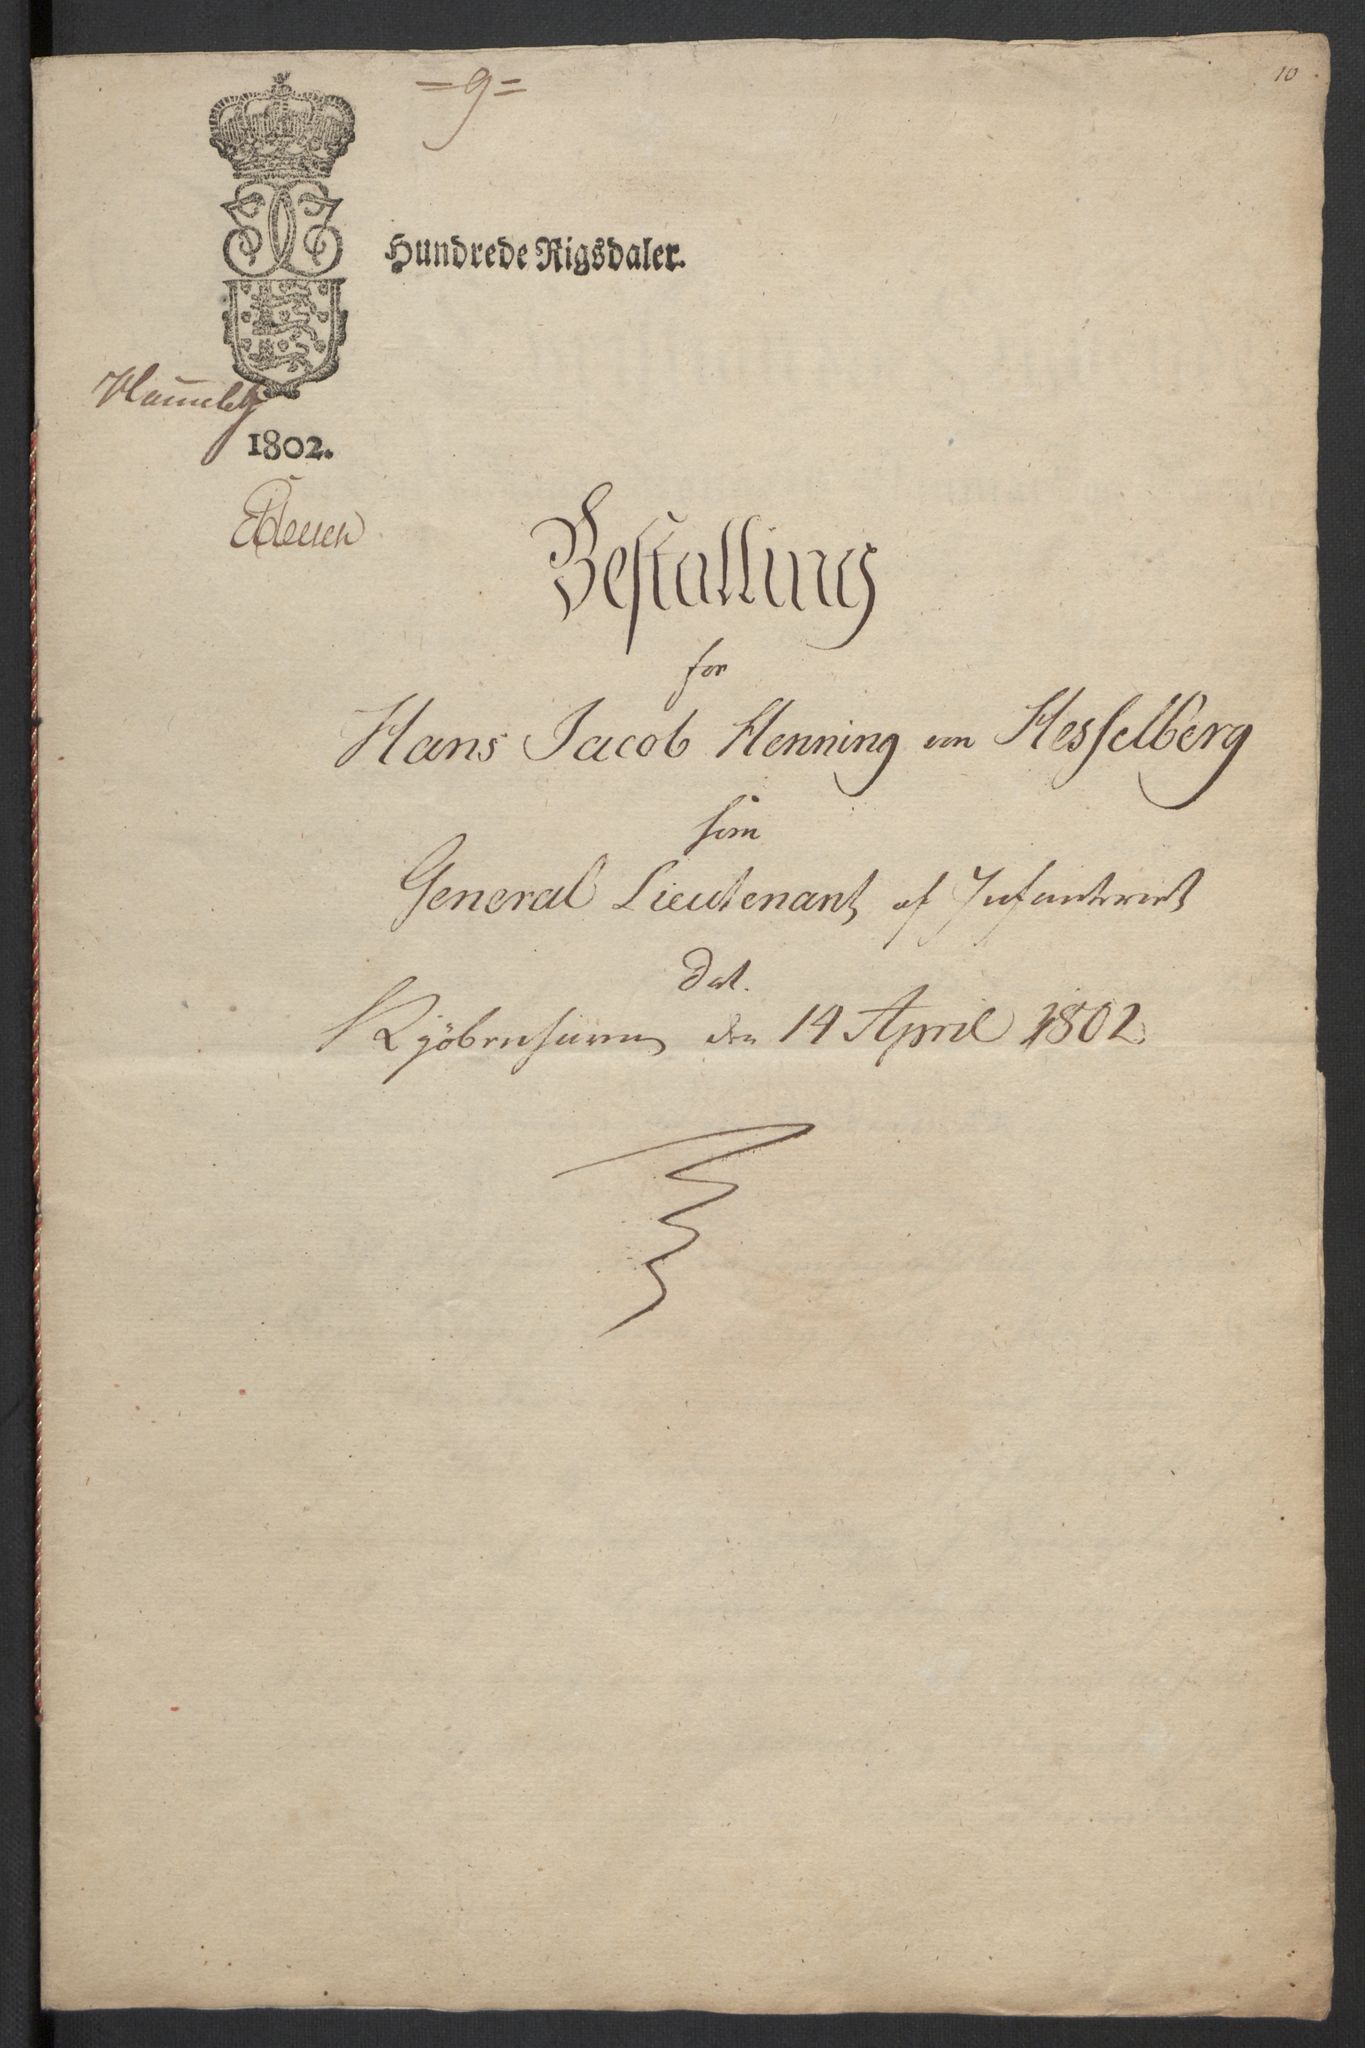 =9=
10
Hundrede Rigsdaler.
1802.
Bestalling
for
Hans Jacob Henning von Hesselberg
som
General Lieutenant af Infanteriet
Dat.
Kjöbenhavn den 14 April 1802.